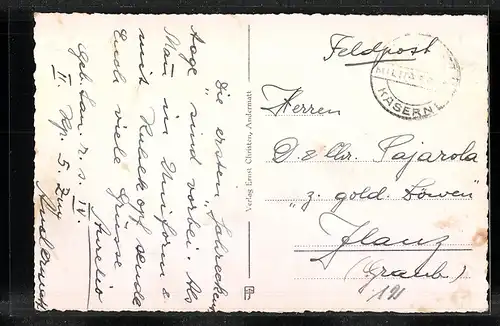 Die ersten „Schrecken-
tage" sind vorbei. Als
Man in Uniform u
mit Kahlkopf sende
Euch viele Grüsse
Aurelio
Geb. San. R. S. IV.
II. Kp. 5. Zug
Andermatt
Verlag Ernst Christen, Andermatt
Feldpost
KASERNE
Herren
D. & Chr. Pajarola
"z. gold. Löwen"
Jlanz
(Graub.)
191